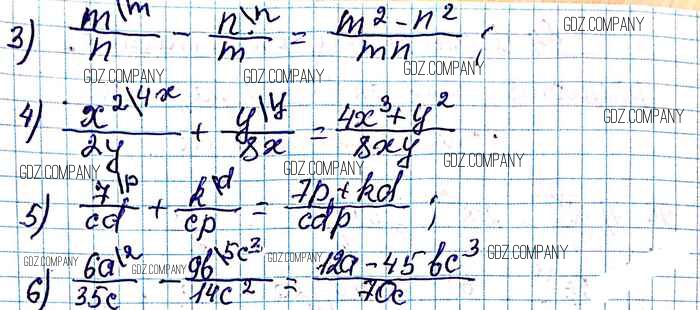 3) m\m/n - n\n/m = (m² - n²)/mn ; GDZ.COMPANY
GDZ.COMPANY GDZ.COMPANY GDZ.COMPANY
4) x²\4x/2y + y\y/8x = (4x³ + y²)/8xy GDZ.COMPANY
GDZ.COMPANY GDZ.COMPANY GDZ.COMPANY
5) 7\p/cd + k\d/cp = (7p + kd)/cdp ; GDZ.COMPANY
GDZ.COMPANY GDZ.COMPANY GDZ.COMPANY GDZ.COMPANY
6) 6a\2/35c - 9b\5c²/14c² = (12a - 45bc³)/70c